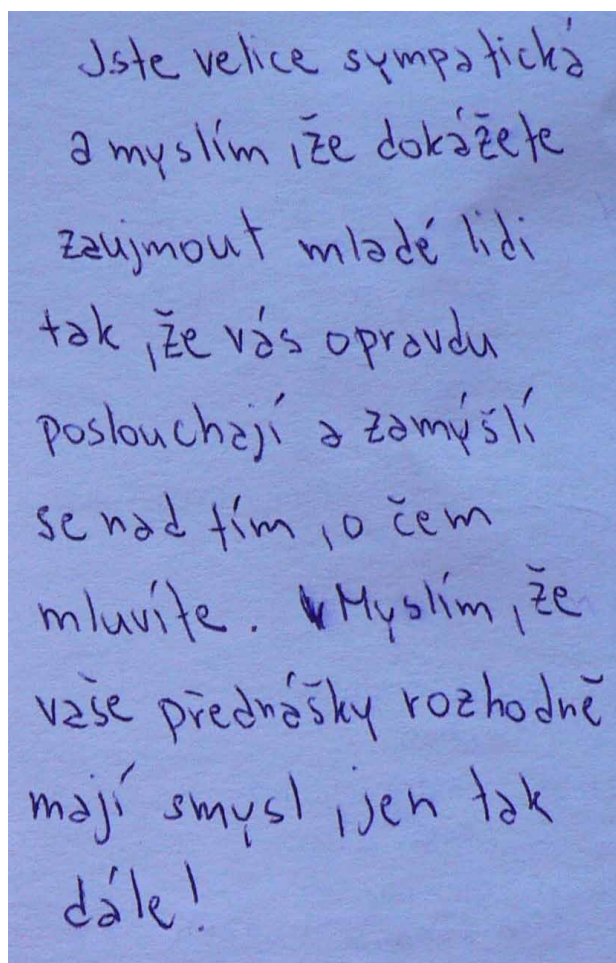 Jste velice sympatická
a myslím, že dokážete
zaujmout mladé lidi
tak, že vás opravdu
poslouchají a zamýšlí
se nad tím, o čem
mluvíte. Myslím, že
vaše přednášky rozhodně
mají smysl, jen tak
dále!